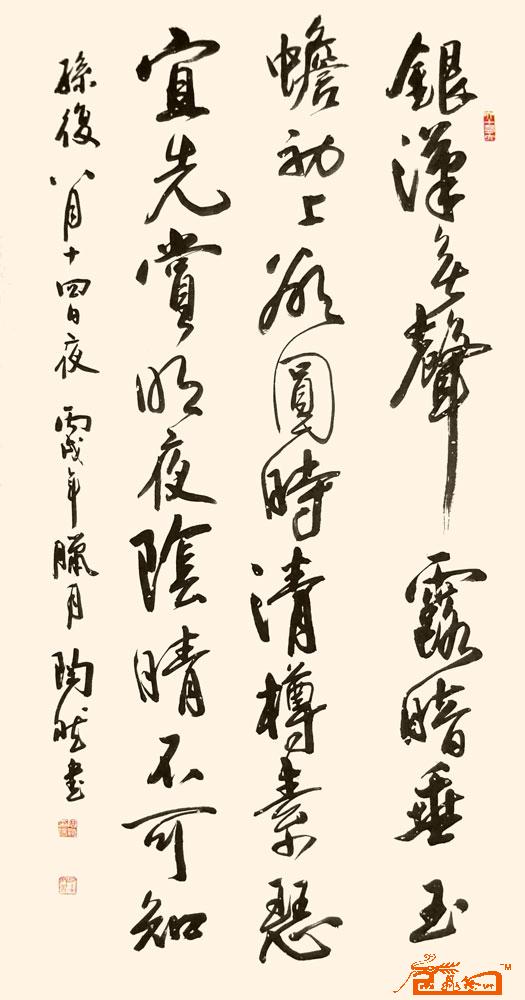 銀漢無聲露暗垂玉
蟾初上欲圓時清樽素瑟
宜先賞明夜陰晴不可知
孫復八月十四日夜 丙戌年臘月 陶書